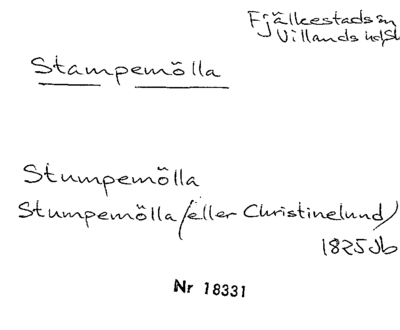 Fjälkestads sn
Villands hd, Sk
Stampemölla
Stumpemölla
Stumpemölla (eller Christinelund)
1825 Jb
Nr 18331